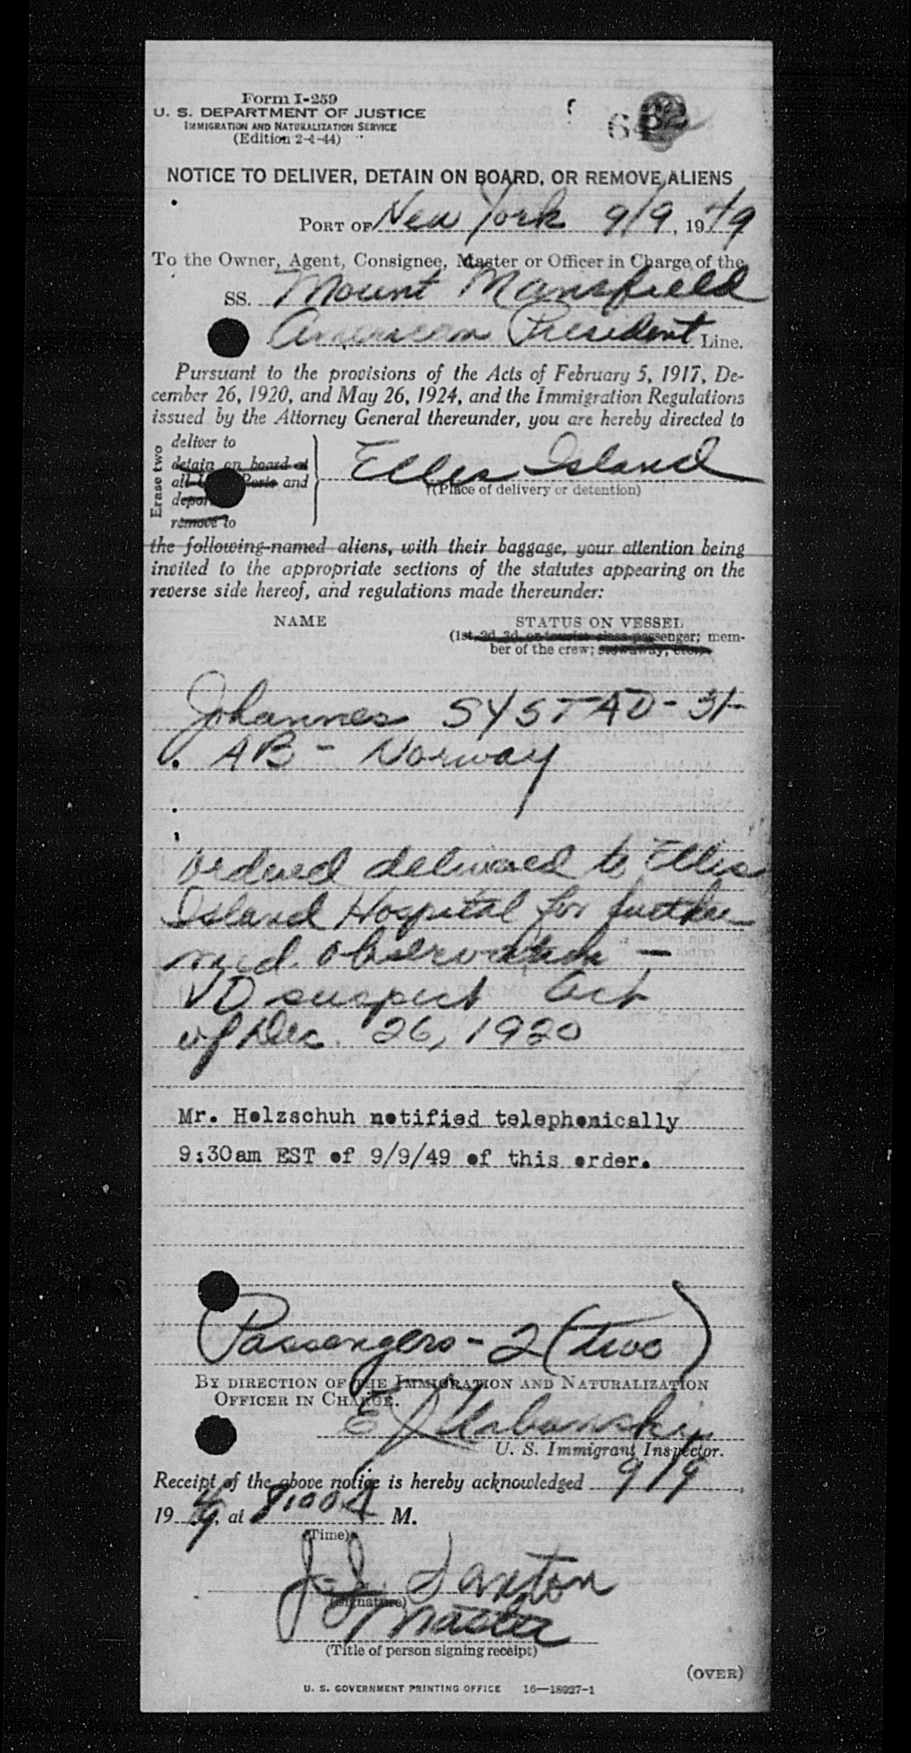 Form I-259
U. S. DEPARTMENT OF JUSTICE
IMMIGRATION AND NATURALIZATION SERVICE
(Edition 2-1-44)
NOTICE TO DELIVER, DETAIN ON BOARD, OR REMOVE ALIENS
PORT OF New York 9/9, 1949
To the Owner, Agent, Consignee, Master or Officer in Charge of the
SS. Mount Mansfield
American President Line.
Pursuant to the provisions of the Acts of February 5, 1917, De-
cember 26, 1920, and May 26, 1924, and the Immigration Regulations
issued by the Attorney General thereunder, you are hereby directed to
Erase two
deliver to
detain on board at
all Ports and
remove to
Ellis Island
(Place of delivery or detention)
the following-named aliens, with their baggage, your attention being
invited to the appropriate sections of the statutes appearing on the
reverse side hereof, and regulations made thereunder:
NAME STATUS ON VESSEL
(1st, 2d, 3d, or tourist class passenger; mem-
ber of the crew; stowaway, etc.)
Johannes SYSTAD - 31-
AB - Norway
Ordered delivered to Ellis
Island Hospital for further
med. observation -
VD suspect Act
of Dec. 26, 1920
Mr. Holzschuh notified telephonically
9:30am EST of 9/9/49 of this order.
Passengers - 2 (two)
BY DIRECTION OF THE IMMIGRATION AND NATURALIZATION
OFFICER IN CHARGE.
E J Urbanski
U. S. Immigrant Inspector.
Receipt of the above notice is hereby acknowledged 9/9,
1949, at M.
(Time)
J. J. Saxton
(Signature)
Master
(Title of person signing receipt)
(OVER)
U. S. GOVERNMENT PRINTING OFFICE 16—18927-1